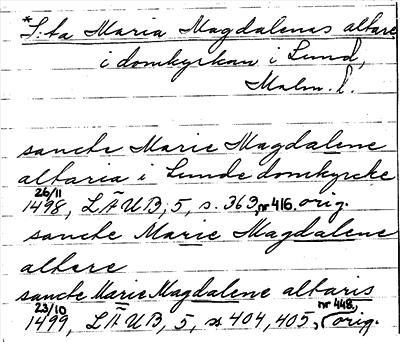 *S:ta Maria Magdalenas altare
i domkyrkan i Lund,
Malm. l.
sancte Marie Magdalene
altaria i Lunde domkyrcke
26/11
1498, LÄUB, 5, s. 363, nr 416. orig.
sancte Marie Magdalene
altare
sancte Marie Magdalene altaris
23/10 nr 448,
1499, LÄUB, 5, s 404, 405, orig.